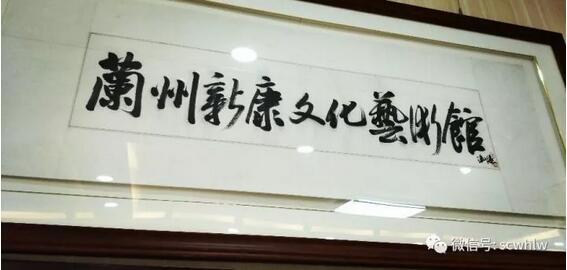 蘭州新康文化藝術館
微信号: scwhlw